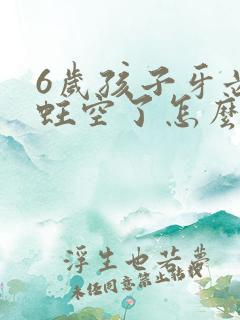 6歲孩子牙齿
蛀空了怎麽
浮生也若夢
未任同意禁止转载